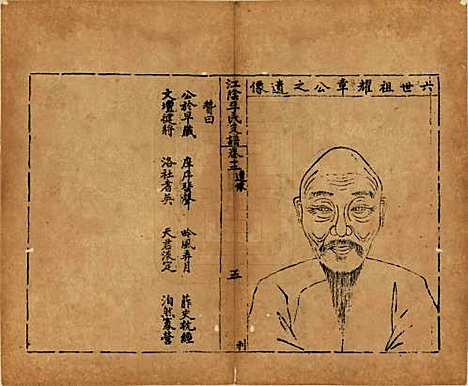 六世祖耀章公之遺像
江陰李氏支譜卷三 遺像
五
贊曰
公於早歲 庠序蜚聲 吟風弄月 葄史枕經
文壇健將 洛社耆英 天君泰定 泊然寡營